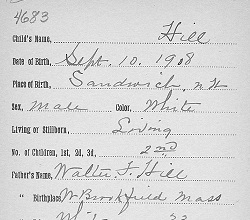 4683
Child's Name, Hill
Date of Birth, Sept. 10, 1908
Place of Birth, Sandwich, N H
Sex, Male Color, White
Living or Stillborn, Living
No. of Children, 1st, 2d, 3d, 2nd
Father's Name, Walter F. Hill
" Birthplace, W. Brookfield Mass